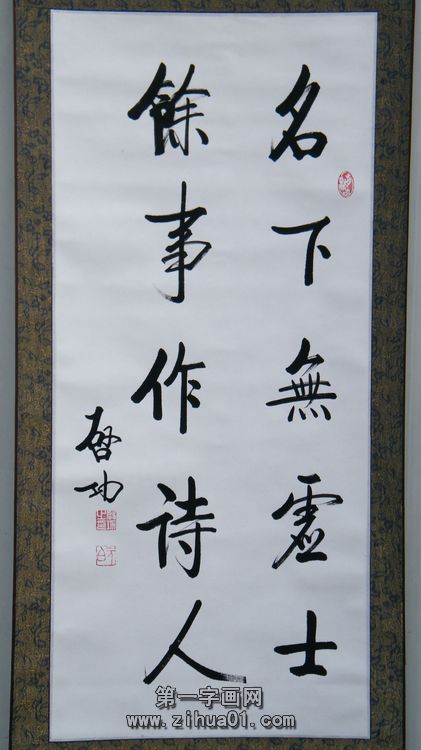 名下無虛士
餘事作诗人
啓功
第一字画网
www.zihua01.com